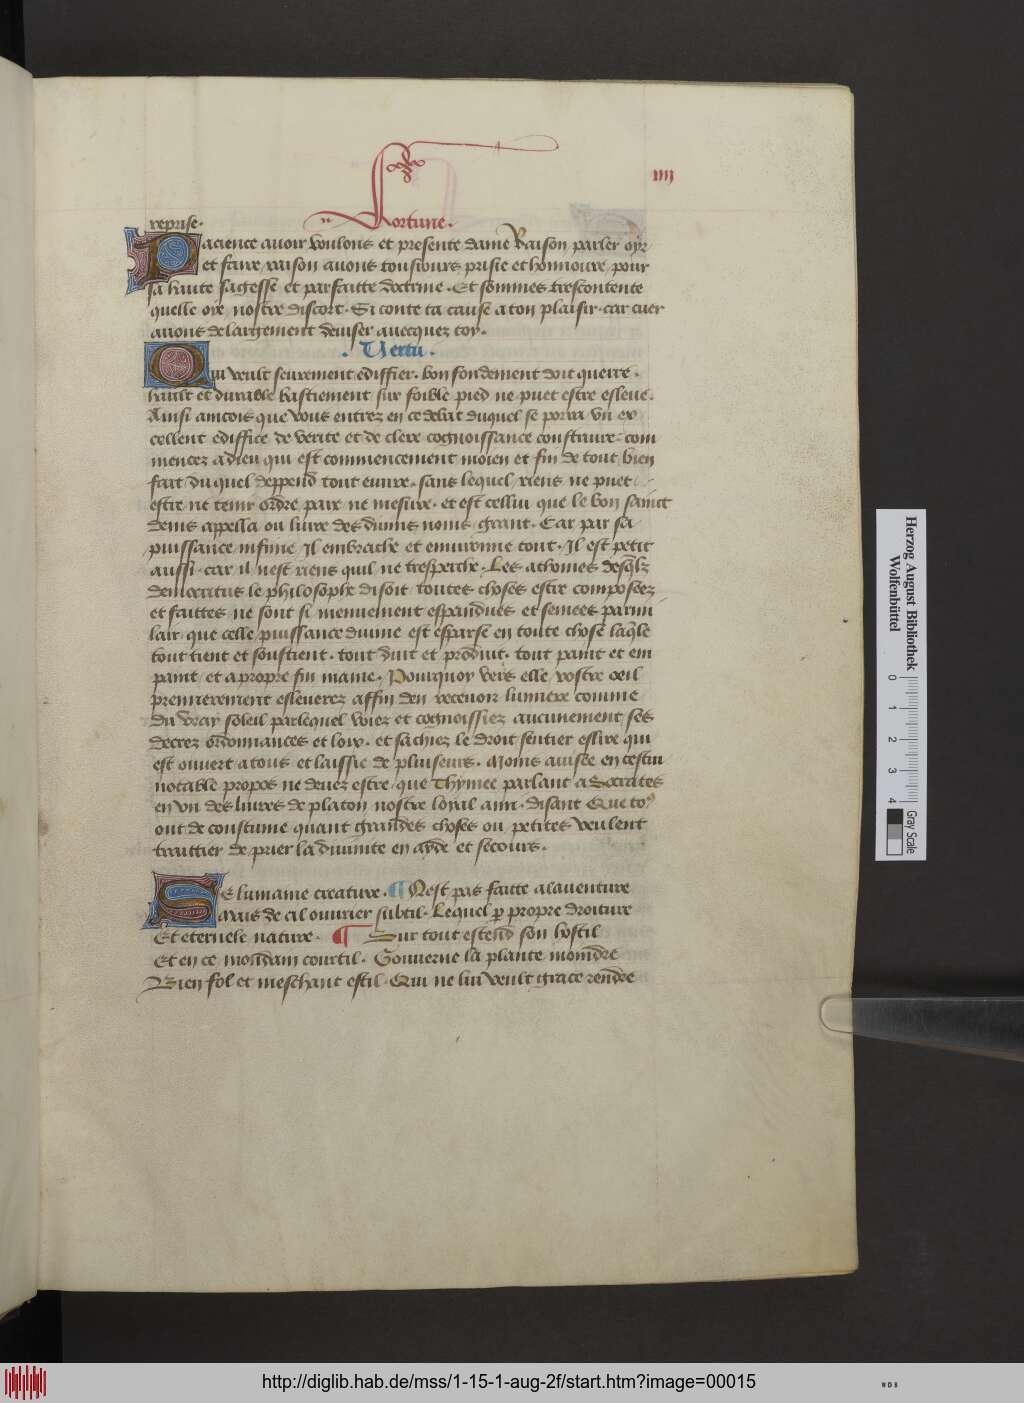 iiii
reprise. Fortune.
Pacience auoir voulons et presente dame Raison parler oyr
et faire raison auons tousiours prisie et honnoure pour
sa haute sagesse et parfaitte doctrine. Et sommes trescontente
quelle oye nostre discort. Si conte ta cause a ton plaisir. car cuer
auons de largement deuiser auecquez toy.
. Vertu .
Qui veult seurement ediffier. bon fondement doit querre.
hault et durable bastiement sur foible pied ne puet estre esleue.
Ainsi aincois que vous entrez en ce debat duquel se porra vn ex
cellent ediffice de verite et de clere cognoissance construire. com
mencez a dieu qui est commencement moien et fin de tout bien
fait, du quel deppend tout eüure. sans lequel riens ne puet
estre ne tenir ordre paix ne mesure. et est cellui que le bon sainct
denis appella ou liure des diuins noms grant. Car par sa
puissance infinie Il embrache et enuironne tout. Il est petit
aussi. car il nest riens quil ne tresperche. Les athomes desqlz
democritus le philosophe disoit toutes choses estre composeez
et faittes ne sont si menuement espandues et semees parmi
lair que celle puissance diuine est esparse en toute chose laqle
tout tient et soustient. tout duit et produit. tout paint et em
paint, et a propre fin maine. Pourquoy vers elle vostre oeil
premierement esleuerez affin den receuoir lumiere comme
du vray soleil par lequel voiez et cognoissiez aucunement ses
decrez ordonnances et loix. et sachiez le droit sentier eslire qui
est ouuert a tous et laissie de pluiseurs. Moins auisee en cestui
notable propos ne deuez estre que Thymee parlant a Socrates
en vn des liures de platon nostre loyal amy. disant Que to9
ont de coustume quant grandes choses ou petites veulent
traittier de prier la diuinite en ayde et secours.
Se lumaine creature. ¶ Nest pas faitte alauenture
Mais de cil ouurier subtil. Lequel p propre droiture
Et eternele nature. ¶ Sur tout estend son hostil
Et en ce mondain courtil. Gouuerne la plante moindre
Bien fol et meschant est il. Qui ne lui veult grace rendre
Herzog August Bibliothek
Wolfenbüttel
0 1 2 3 4
Gray Scale
http://diglib.hab.de/mss/1-15-1-aug-2f/start.htm?image=00015
WDB